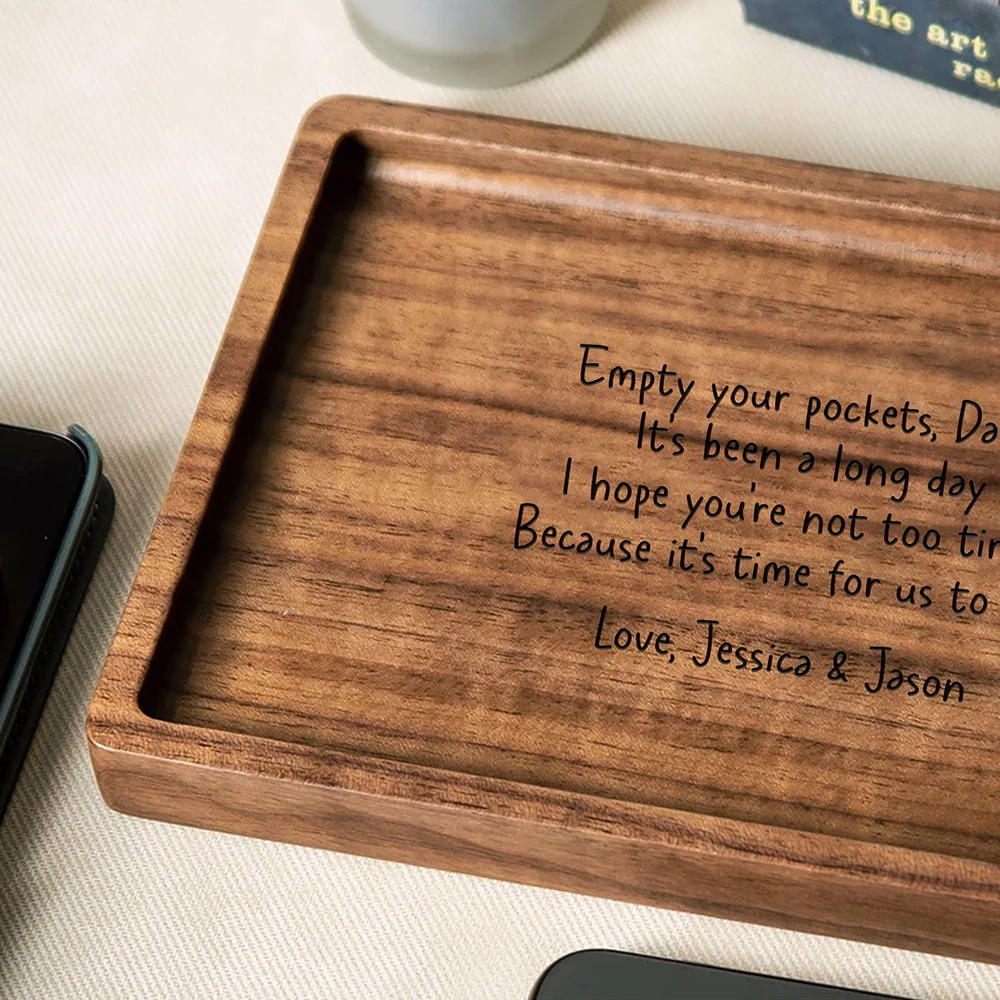 the art
Empty your pockets,
It's been a long day
I hope you're not too
Because it's time for us to
Love, Jessica & Jason